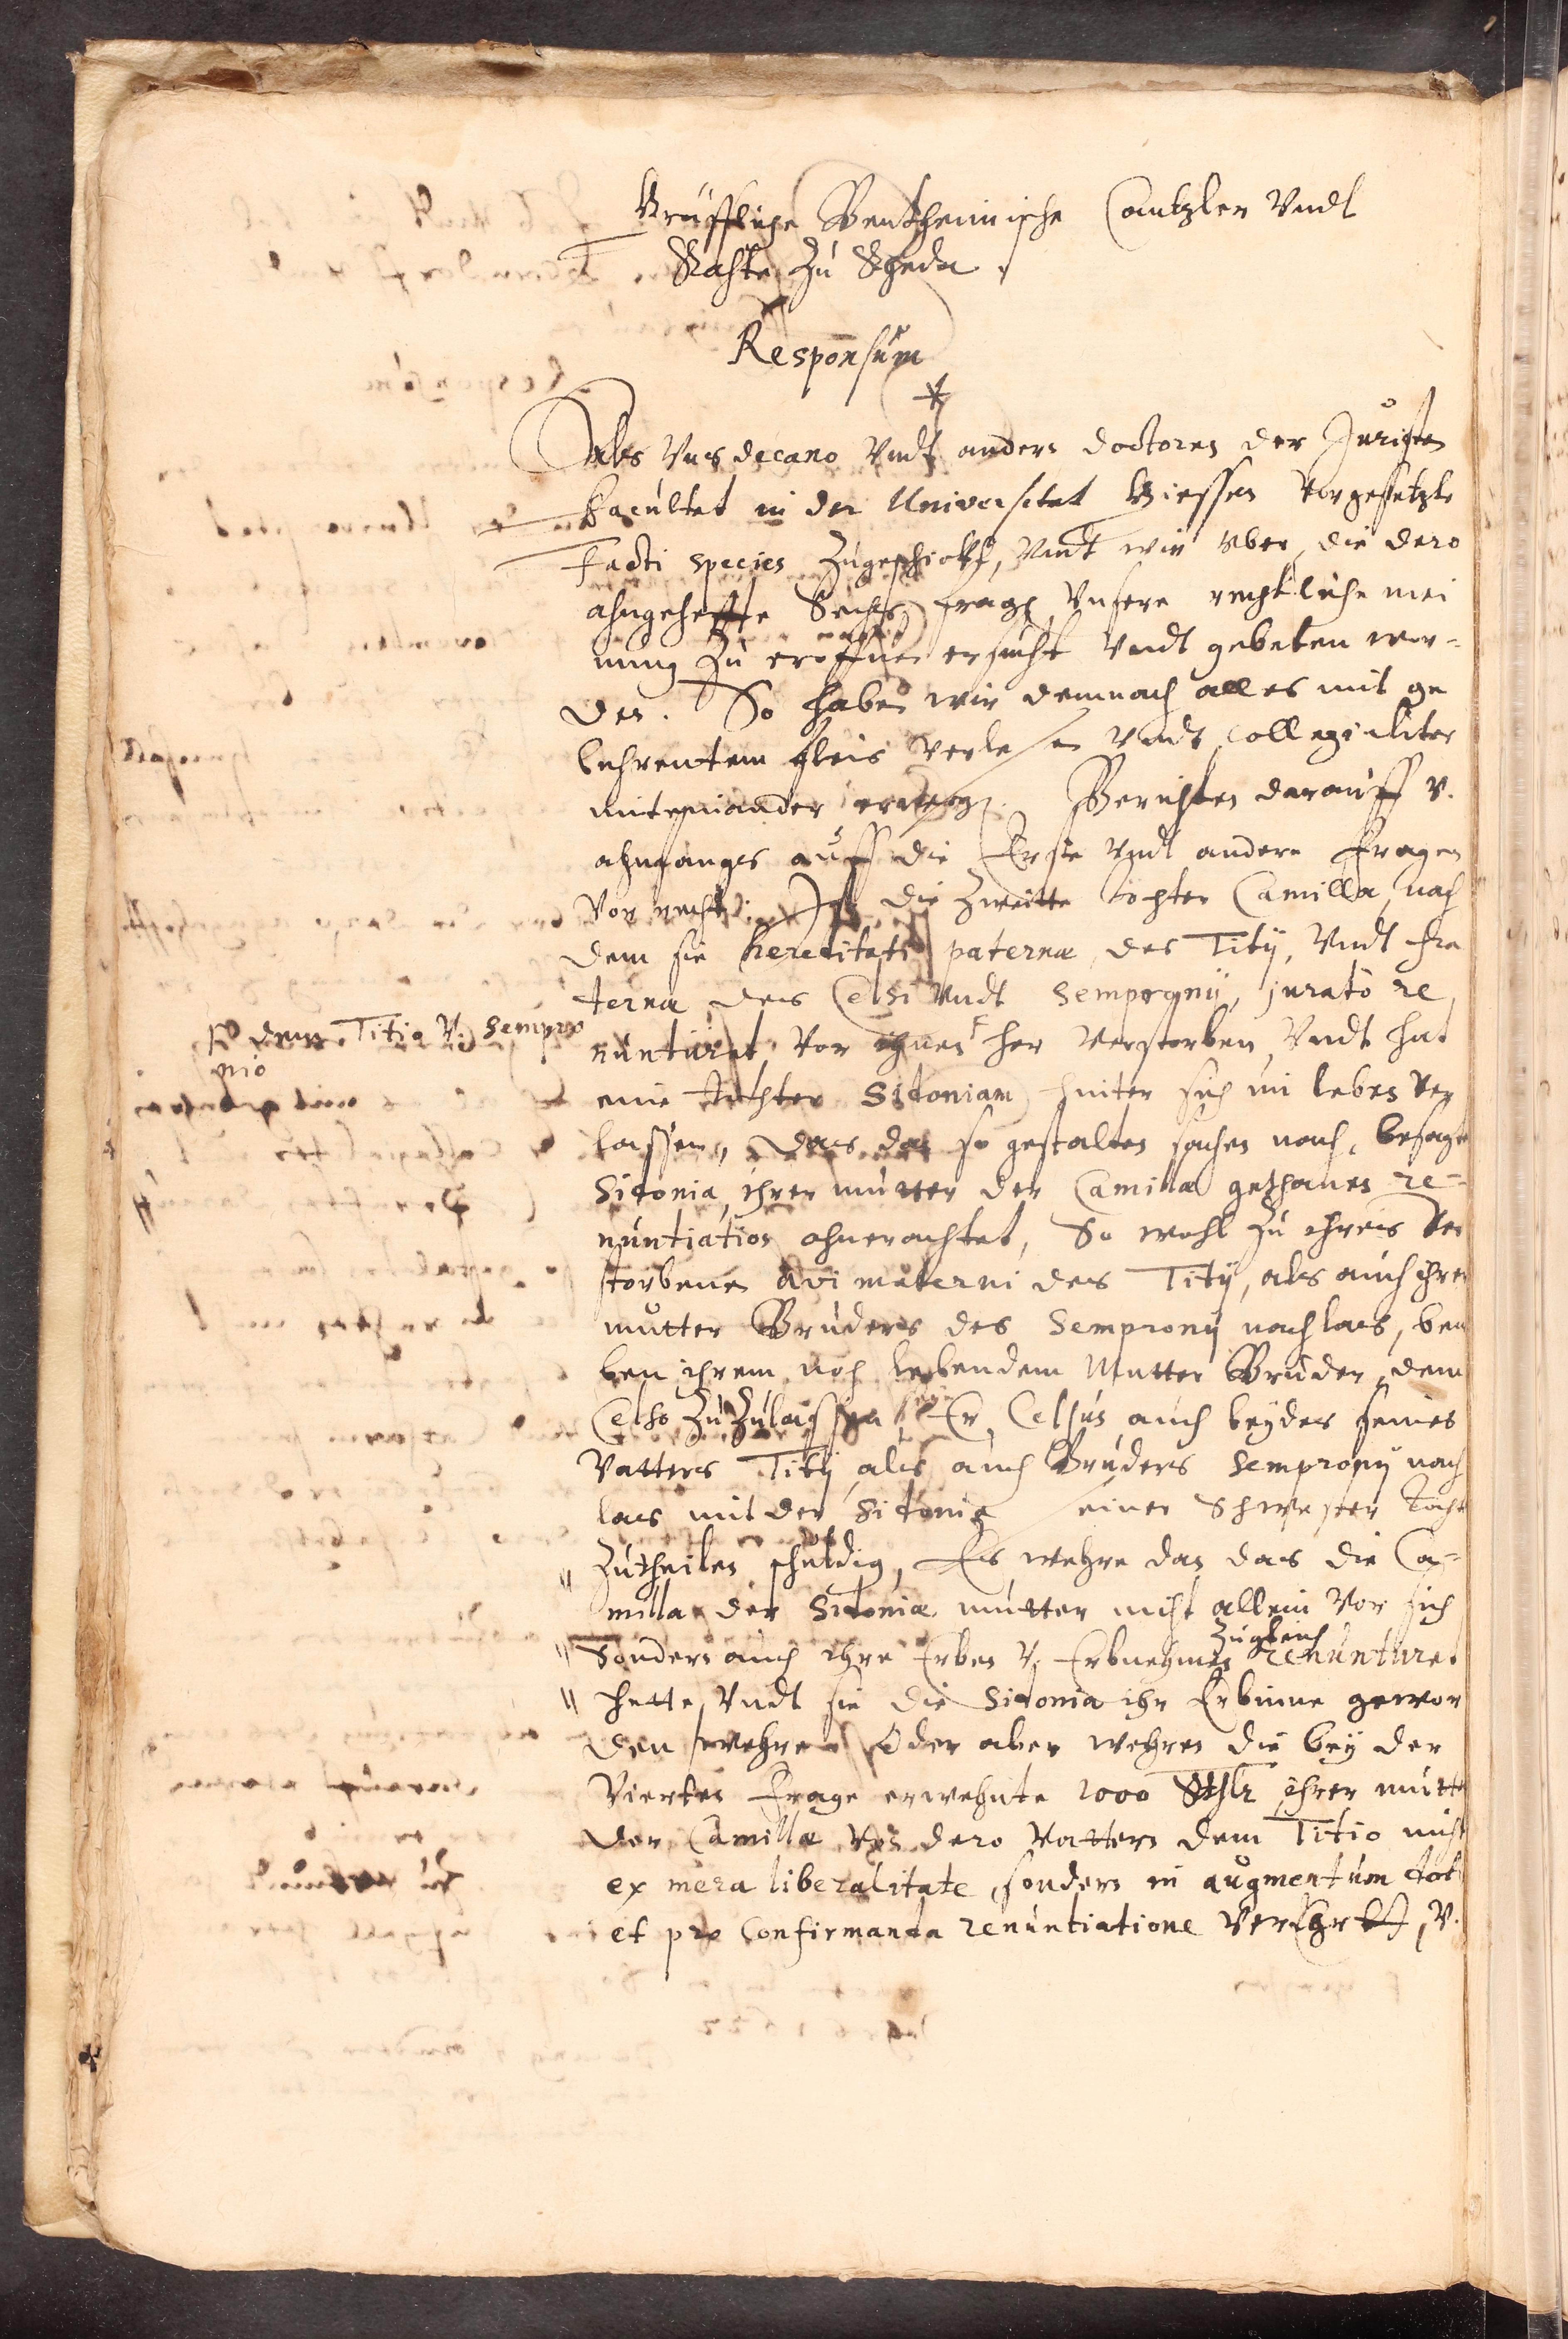 Gräffliche Bentheimische Cantzler Undt
Rähte Zu Rheda.
Responsum
Als Uns decano Undt andern doctoren der Juristen
Facultet in der Universitet Giessen Vorgesetzte
Facti species Zugeschickt, Undt wir Uber die dero
ahngeheffte Sechs fragen Unsere rechtliche mei
nung Zu eröffnen ersucht Undt gebeten wor-
den. So haben wir demnach alles mit ge
buhrentem fleis Verlesen Undt collegialiter
miteinander erwegen. Berichten darauff V.
ahnfangs auff die Erste Undt andere Fragen
Vor recht: Ist die Zweitte tochter Camilla, nach
dem sie hereditati paternæ des Titÿ, Undt fra
ternæ des Celsi Undt Sempronii, jurato re
nuntiiret, Vor ihnen her Verstorben, Undt hat
F dem Titio V. Sempro
nio
eine tochter Sidoniam hinter sich im leben Ver
lassen, das dan so gestalten sachen nach, besagte
Sidonia, ihrer mutter der Camillæ gethanen re-
nuntiation ohnerachtet, So wohl Zu ihres Ver
storbenen avi materni des Titÿ, als auch ihrer
mutter Bruders des Sempronÿ nachlas, ben
ben ihrem noch lebendem Mutter Bruder dem
Celso Zu Zulassen, Er Celsus auch beyder seines
Vatters Titÿ als auch Bruders Sempronÿ nach
las mit der Sidonia seiner Schwester Tocht
Zutheilen schuldig, Es wehre dan das die Ca-
milla der Sidoniæ mutter nicht allein Vor sich
Sondern auch ihre Erben V. Erbnehmen Zugleich renuntiiret
hette, Undt sie die Sidonia ihr Erbinne gewor
den wehre Oder aber wehren die beÿ der
Vierten Frage erwehnte 1000 Rthlr ihrer mutter
der Camillæ Von dero Vattern dem Titio nicht
ex mera liberalitate, sondern in augmentum doti
et pro confirmanda renuntiatione Verehrt, V.